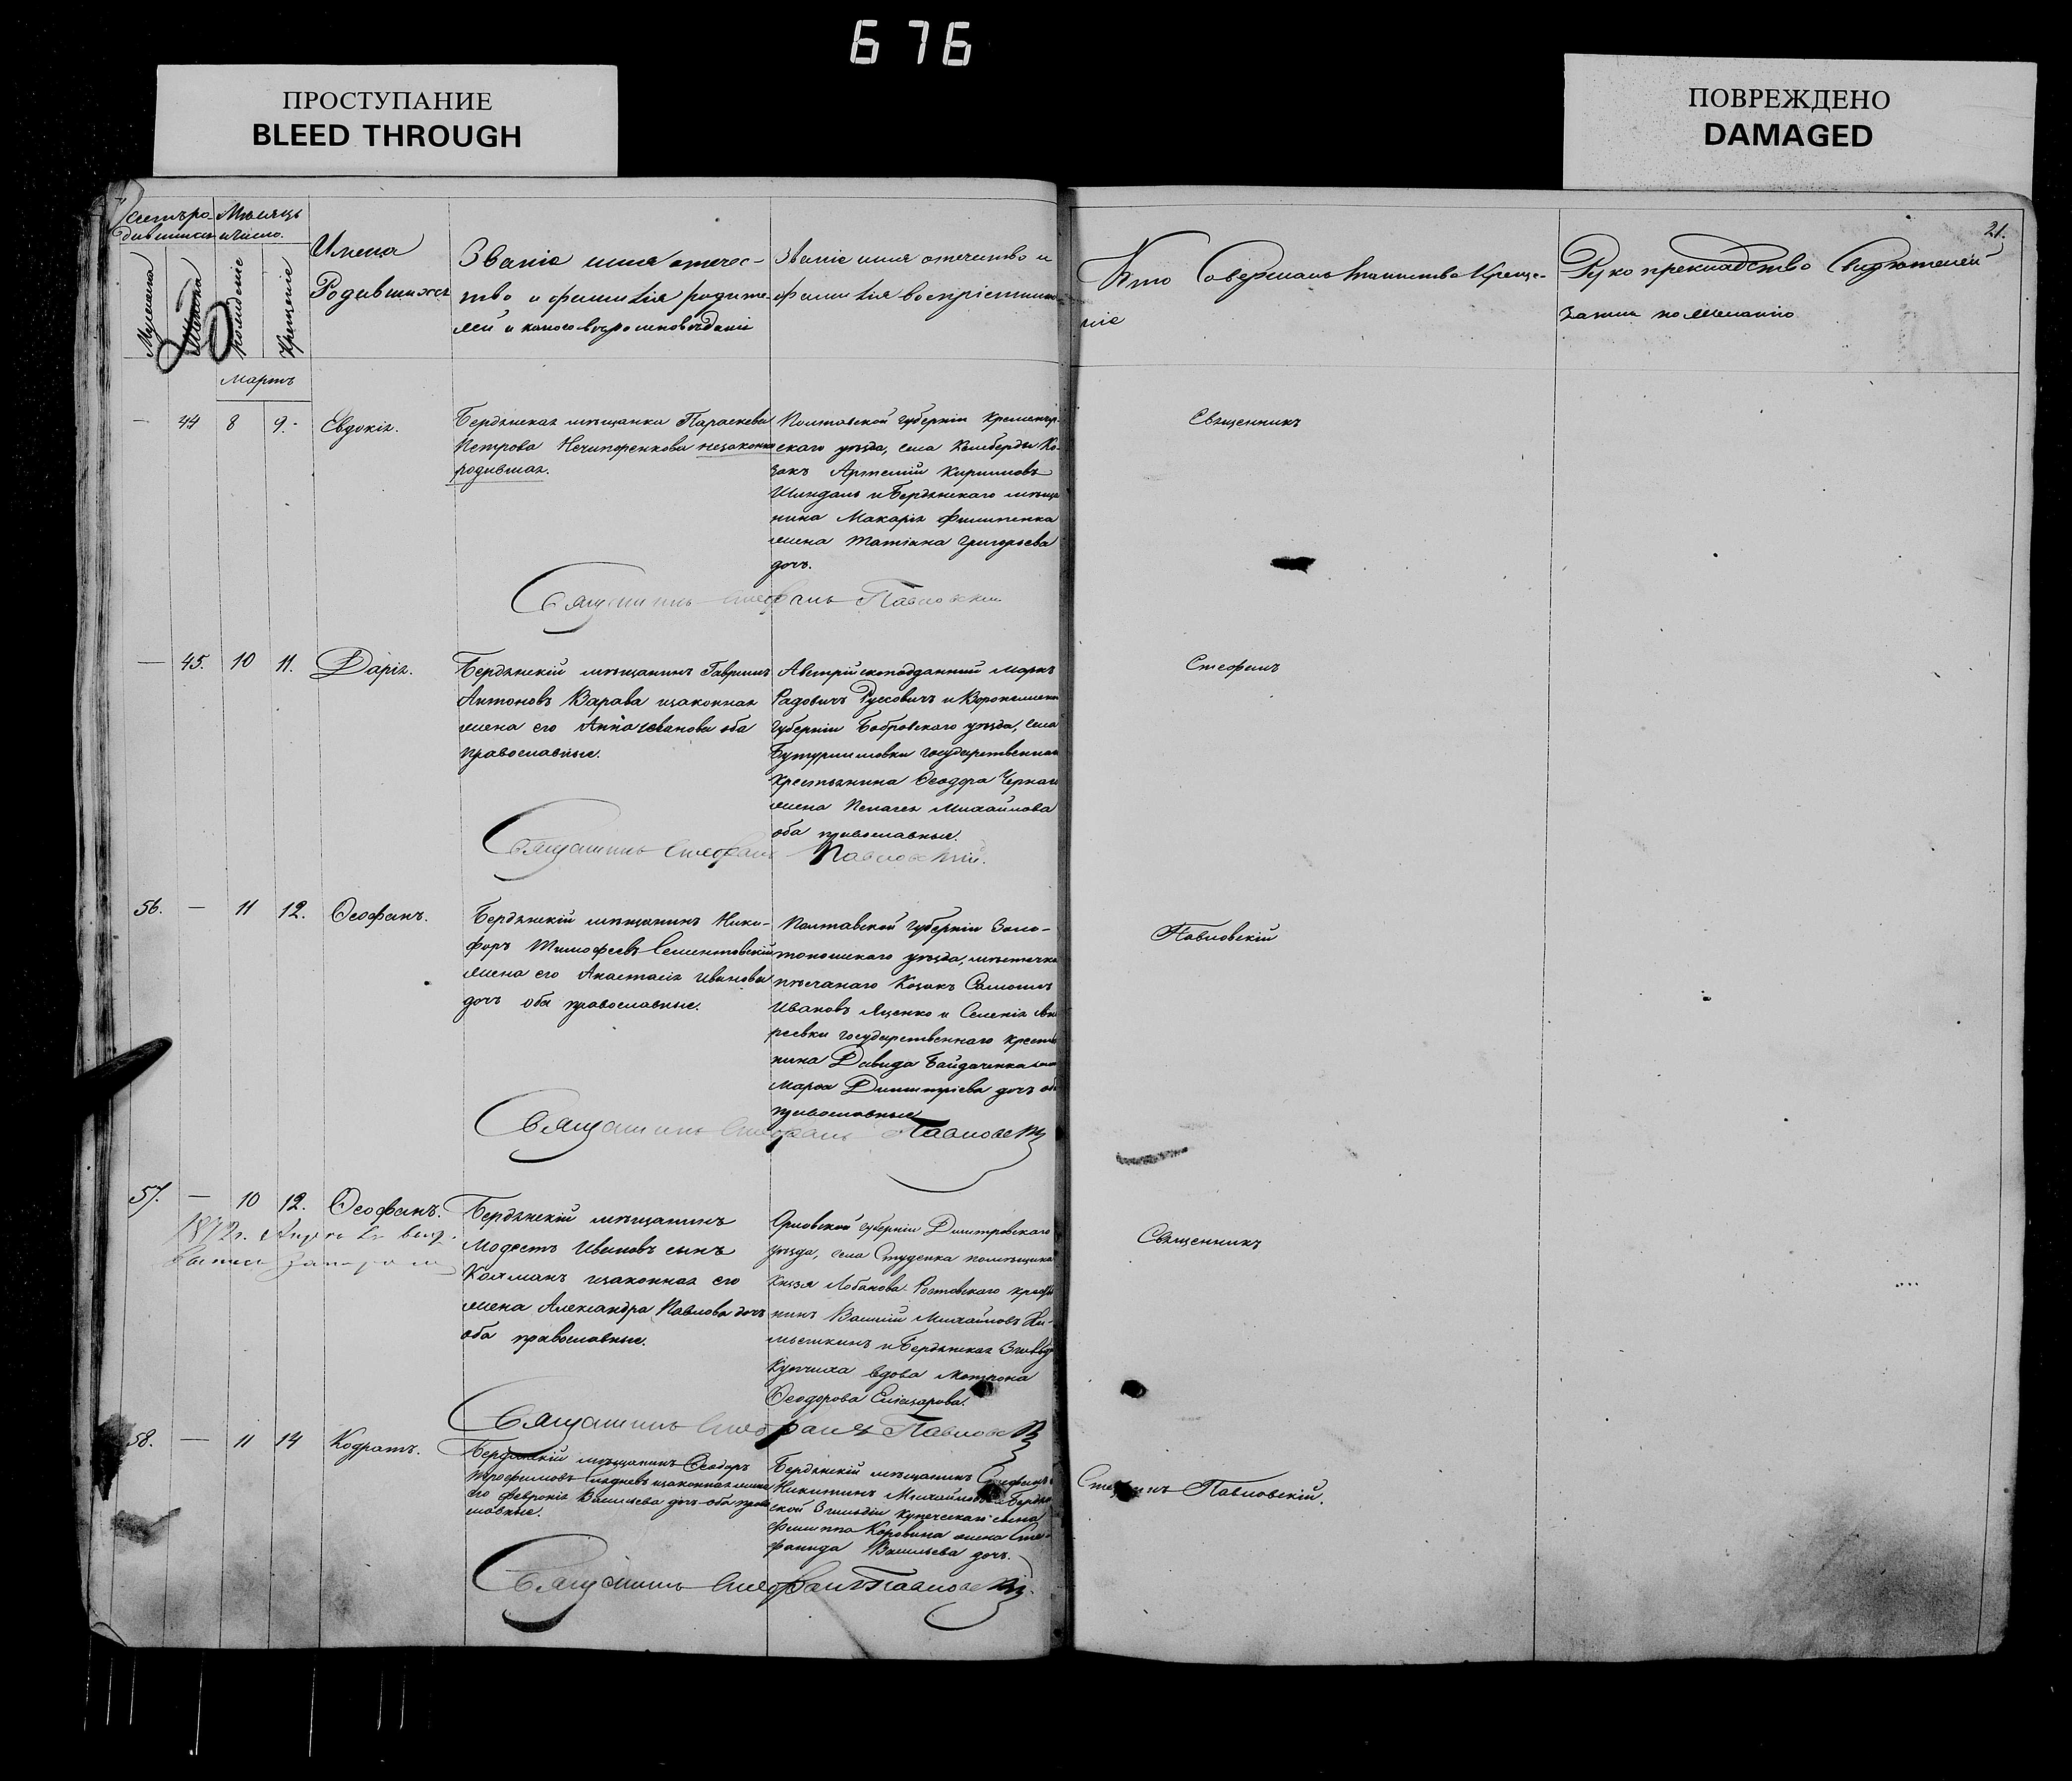 676
ПРОСТУПАНИЕ
BLEED THROUGH
ПОВРЕЖДЕНО
DAMAGED
21.
Счетъ ро-
дившихся
Мѣсяцъ
и число.
Мужеска
Женска
рожденіе
Крещеніе
Имена
Родившихся
Званіе имя отечес-
тво и фамилія родите-
лей и какого вѣроисповѣданія
Званіе имя отечество и
фамилія воспріемник
Кто Совершалъ таинство Креще-
ніе
Рукоприкладство Свидѣтелей
записи по желанію
Мартъ
— 44 8 9. Евдокія.
Бердянская мѣщанка Параскева
Петрова Нечипоренкова незаконно
родившая.
Полтавской губерніи Кременчуг-
скаго уѣзда, села Келеберды Ко-
закъ Артемій Кириловъ
Шиндаль и Бердянскаго мѣща
нина Макарія Филипенка
жена Татіана Григорьева
дочь.
Священникъ
Священникъ Стефанъ Павловскій
— 45. 10 11. Дарія.
Бердянскій мѣщанинъ Гавриилъ
Антоновъ Варава изаконная
жена его Анна Иванова оба
православные.
Австрійскоподданный Марко
Радовичъ Русовичъ и Воронежской
губерніи Бобровскаго уѣзда, села
Бутурлиновки государственнаго
крестьянина Ѳеодора Чернаго
жена Пелагея Михайлова
оба православные.
Стефанъ
Священникъ Стефанъ Павловскій.
56. — 11 12. Ѳеофанъ.
Бердянскій мѣщанинъ Ники-
форъ Тимофеевъ Сементовскій
жена его Анастасія Иванова
дочь оба православные.
Полтавской губерніи Золо-
тоношскаго уѣзда, мѣстечка
пѣсчанаго Козакъ Самоилъ
Ивановъ Яценко и Селенія Анд
реевки государственнаго крестья
нина Давида Байдаченка жена
Марѳа Димитріева дочь оба
православные
Павловскій
Священникъ Стефанъ Павловскій
57. — 10 12. Ѳеофанъ.
1872г.
Бердянскій мѣщанинъ
Модестъ Ивановъ сынъ
Калманъ изаконная его
жена Александра Павлова дочь
оба православные.
Орловской губерніи Димитровскаго
уѣзда, села Студенка помѣщика
Князя Лобанова Ростовскаго крестья
нинъ Василій Михайловъ
и Бердянская 3 гильд
Купчиха вдова Матрона
Ѳеодорова Елизарова.
Священникъ
Священникъ Стефанъ Павловскій
58. — 11 14 Кодратъ.
Бердянскій мѣщанинъ Ѳеодоръ
Трофимовъ изаконная жена
его Февронія Васильева дочь оба право
славные.
Бердянскій мѣщанинъ Стефанъ
Никитинъ Михайловъ и Бердян
ской 3 гильдіи купеческаго сына
Филиппа Коровина жена Сте-
фанида Васильева дочь.
Стефанъ Павловскій.
Священникъ Стефанъ Павловскій.